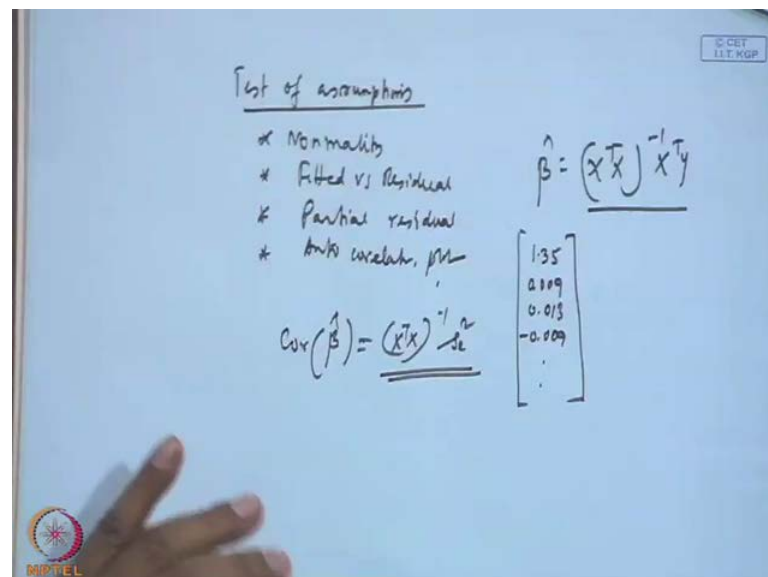 © CET
I.I.T. KGP
Test of assumptions
* Normality
* Fitted vs Residual
* Partial residual
* Auto correlatn. plot
β̂ = (XᵀX)⁻¹Xᵀy
1.35
0.009
0.013
-0.009
.
.
Cov(β̂) = (XᵀX)⁻¹ sₑ²
NPTEL